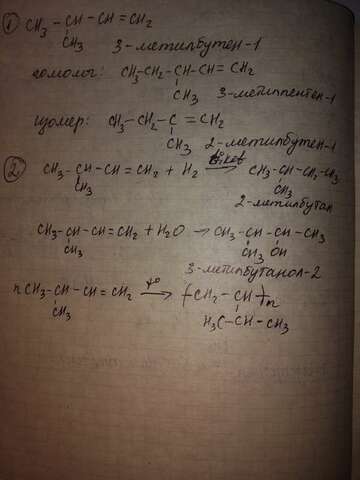 1) CH₃ - CH - CH = CH₂
CH₃ 3-метилбутен-1
гомолог: CH₃-CH₂-CH-CH=CH₂
CH₃ 3-метилпентен-1
изомер: CH₃ - CH₂ - C = CH₂
CH₃ 2-метилбутен-1
2) CH₃-CH-CH=CH₂ + H₂ → CH₃-CH-CH₂-CH₃
CH₃ CH₃
2-метилбутан
CH₃-CH-CH=CH₂ + H₂O → CH₃-CH-CH-CH₃
CH₃ CH₃ OH
3-метилбутанол-2
n CH₃-CH-CH=CH₂ t° → (-CH₂-CH-)n
CH₃ H₃C-CH-CH₃